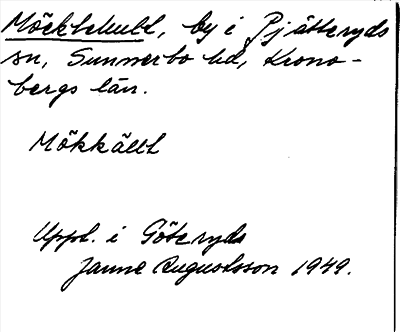 Möckhult, by i Pjätteryds
sn, Sunnerbo hd, Krono-
bergs län.
Mökkällt
Uppt. i Göteryds
Janne Augustsson 1949.